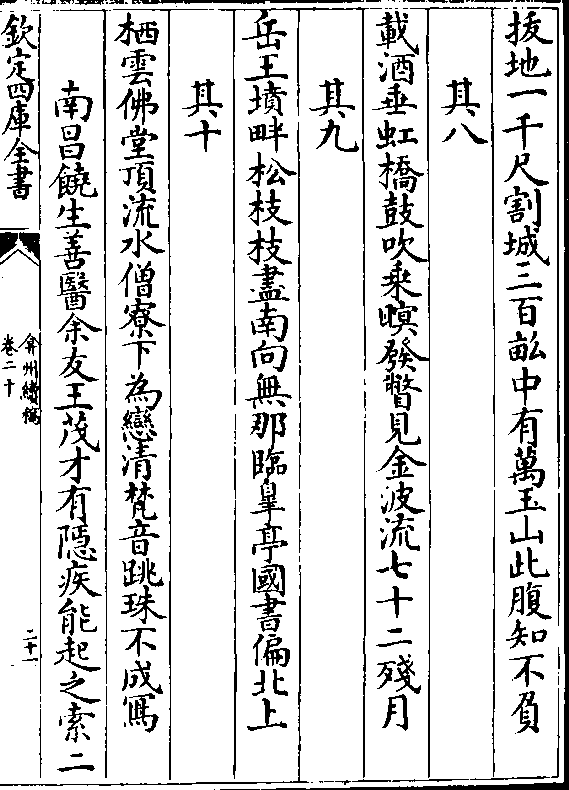 拔地一千尺割城三百畝中有萬玉山此腹知不負
其八
載酒垂虹橋鼓吹乘暝發瞥見金波流七十二殘月
其九
岳王墳畔松枝枝盡南向無那臨臯亭國書偏北上
其十
栖雲佛堂頂流水僧寮下為戀清梵音跳珠不成寫
南昌饒生善醫余友王茂才有隱疾能起之索二
欽定四庫全書
弇州續稿
卷二十
二十一